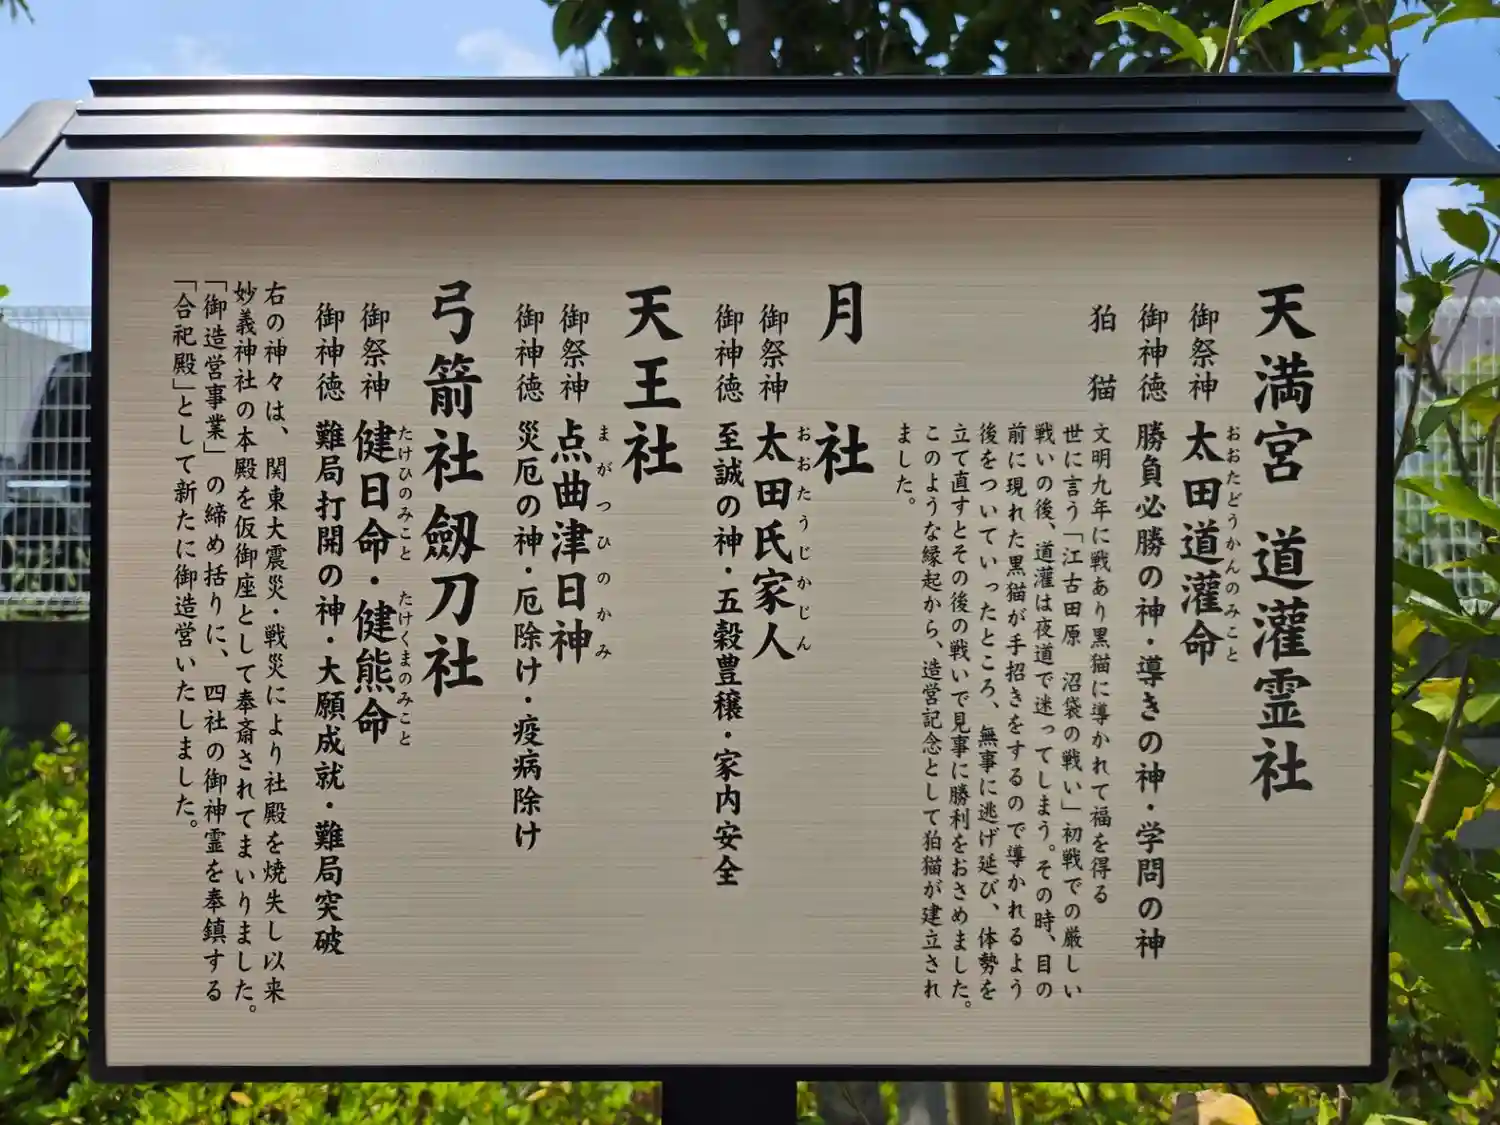 天満宮　道灌霊社
御祭神　太田道灌命
おおたどうかんのみこと
御神徳　勝負必勝の神・導きの神・学問の神
狛　猫　文明九年に戦あり黒猫に導かれて福を得る
世に言う「江古田原　沼袋の戦い」初戦での厳しい
戦いの後、道灌は夜道で迷ってしまう。その時、目の
前に現れた黒猫が手招きをするので導かれるよう
後をついていったところ、無事に逃げ延び、体勢を
立て直すとその後の戦いで見事に勝利をおさめました。
このような縁起から、造営記念として狛猫が建立され
ました。
月　社
御祭神　太田氏家人
おおたうじかじん
御神徳　至誠の神・五穀豊穣・家内安全
天王社
御祭神　点曲津日神
まがつひのかみ
御神徳　災厄の神・厄除け・疫病除け
弓箭社劔刀社
御祭神　健日命・健熊命
たけひのみこと　たけくまのみこと
御神徳　難局打開の神・大願成就・難局突破
右の神々は、関東大震災・戦災により社殿を焼失し以来
妙義神社の本殿を仮御座として奉斎されてまいりました。
「御造営事業」の締め括りに、四社の御神霊を奉鎮する
「合祀殿」として新たに御造営いたしました。